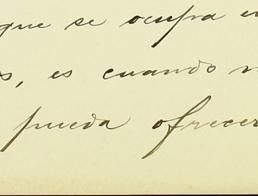 que se ocupa
s, es cuando
pueda ofrecer